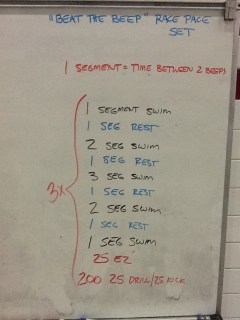 "BEAT THE BEEP" RACE PACE
SET
1 SEGMENT = TIME BETWEEN 2 BEEPS
1 SEGMENT SWIM
1 SEG REST
2 SEG SWIM
1 SEG REST
3 SEG SWIM
3x
1 SEG REST
2 SEG SWIM
1 SEG REST
1 SEG SWIM
25 EZ
200 25 DRILL/25 KICK